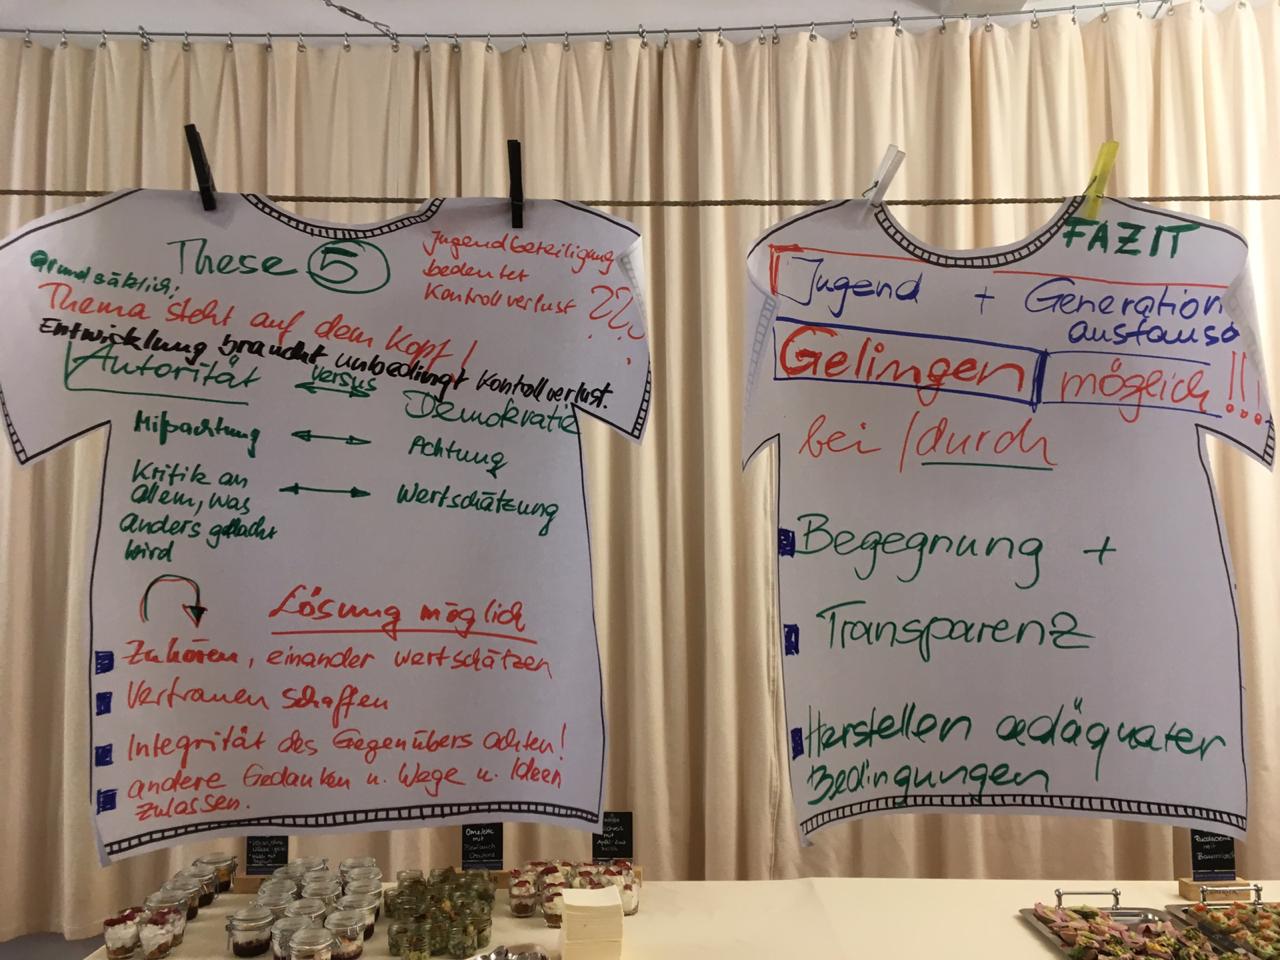 These 5
Jugendbeteiligung
bedeutet
Kontrollverlust ???
Grundsätzlich:
Thema steht auf dem Kopf!
Entwicklung braucht unbedingt Kontrollverlust.
Autorität versus Demokratie
Mißachtung Achtung
Kritik an
allem, was
anders gedacht
wird
Wertschätzung
Lösung möglich
Zuhören, einander wertschätzen
Vertrauen schaffen
Integrität des Gegenübers achten!
andere Gedanken u. Wege u. Ideen
zulassen.
FAZIT
Jugend + Generation
austausc
Gelingen möglich!!!
bei / durch
Begegnung +
Transparenz
Herstellen adäquater
Bedingungen
Omelette
mit